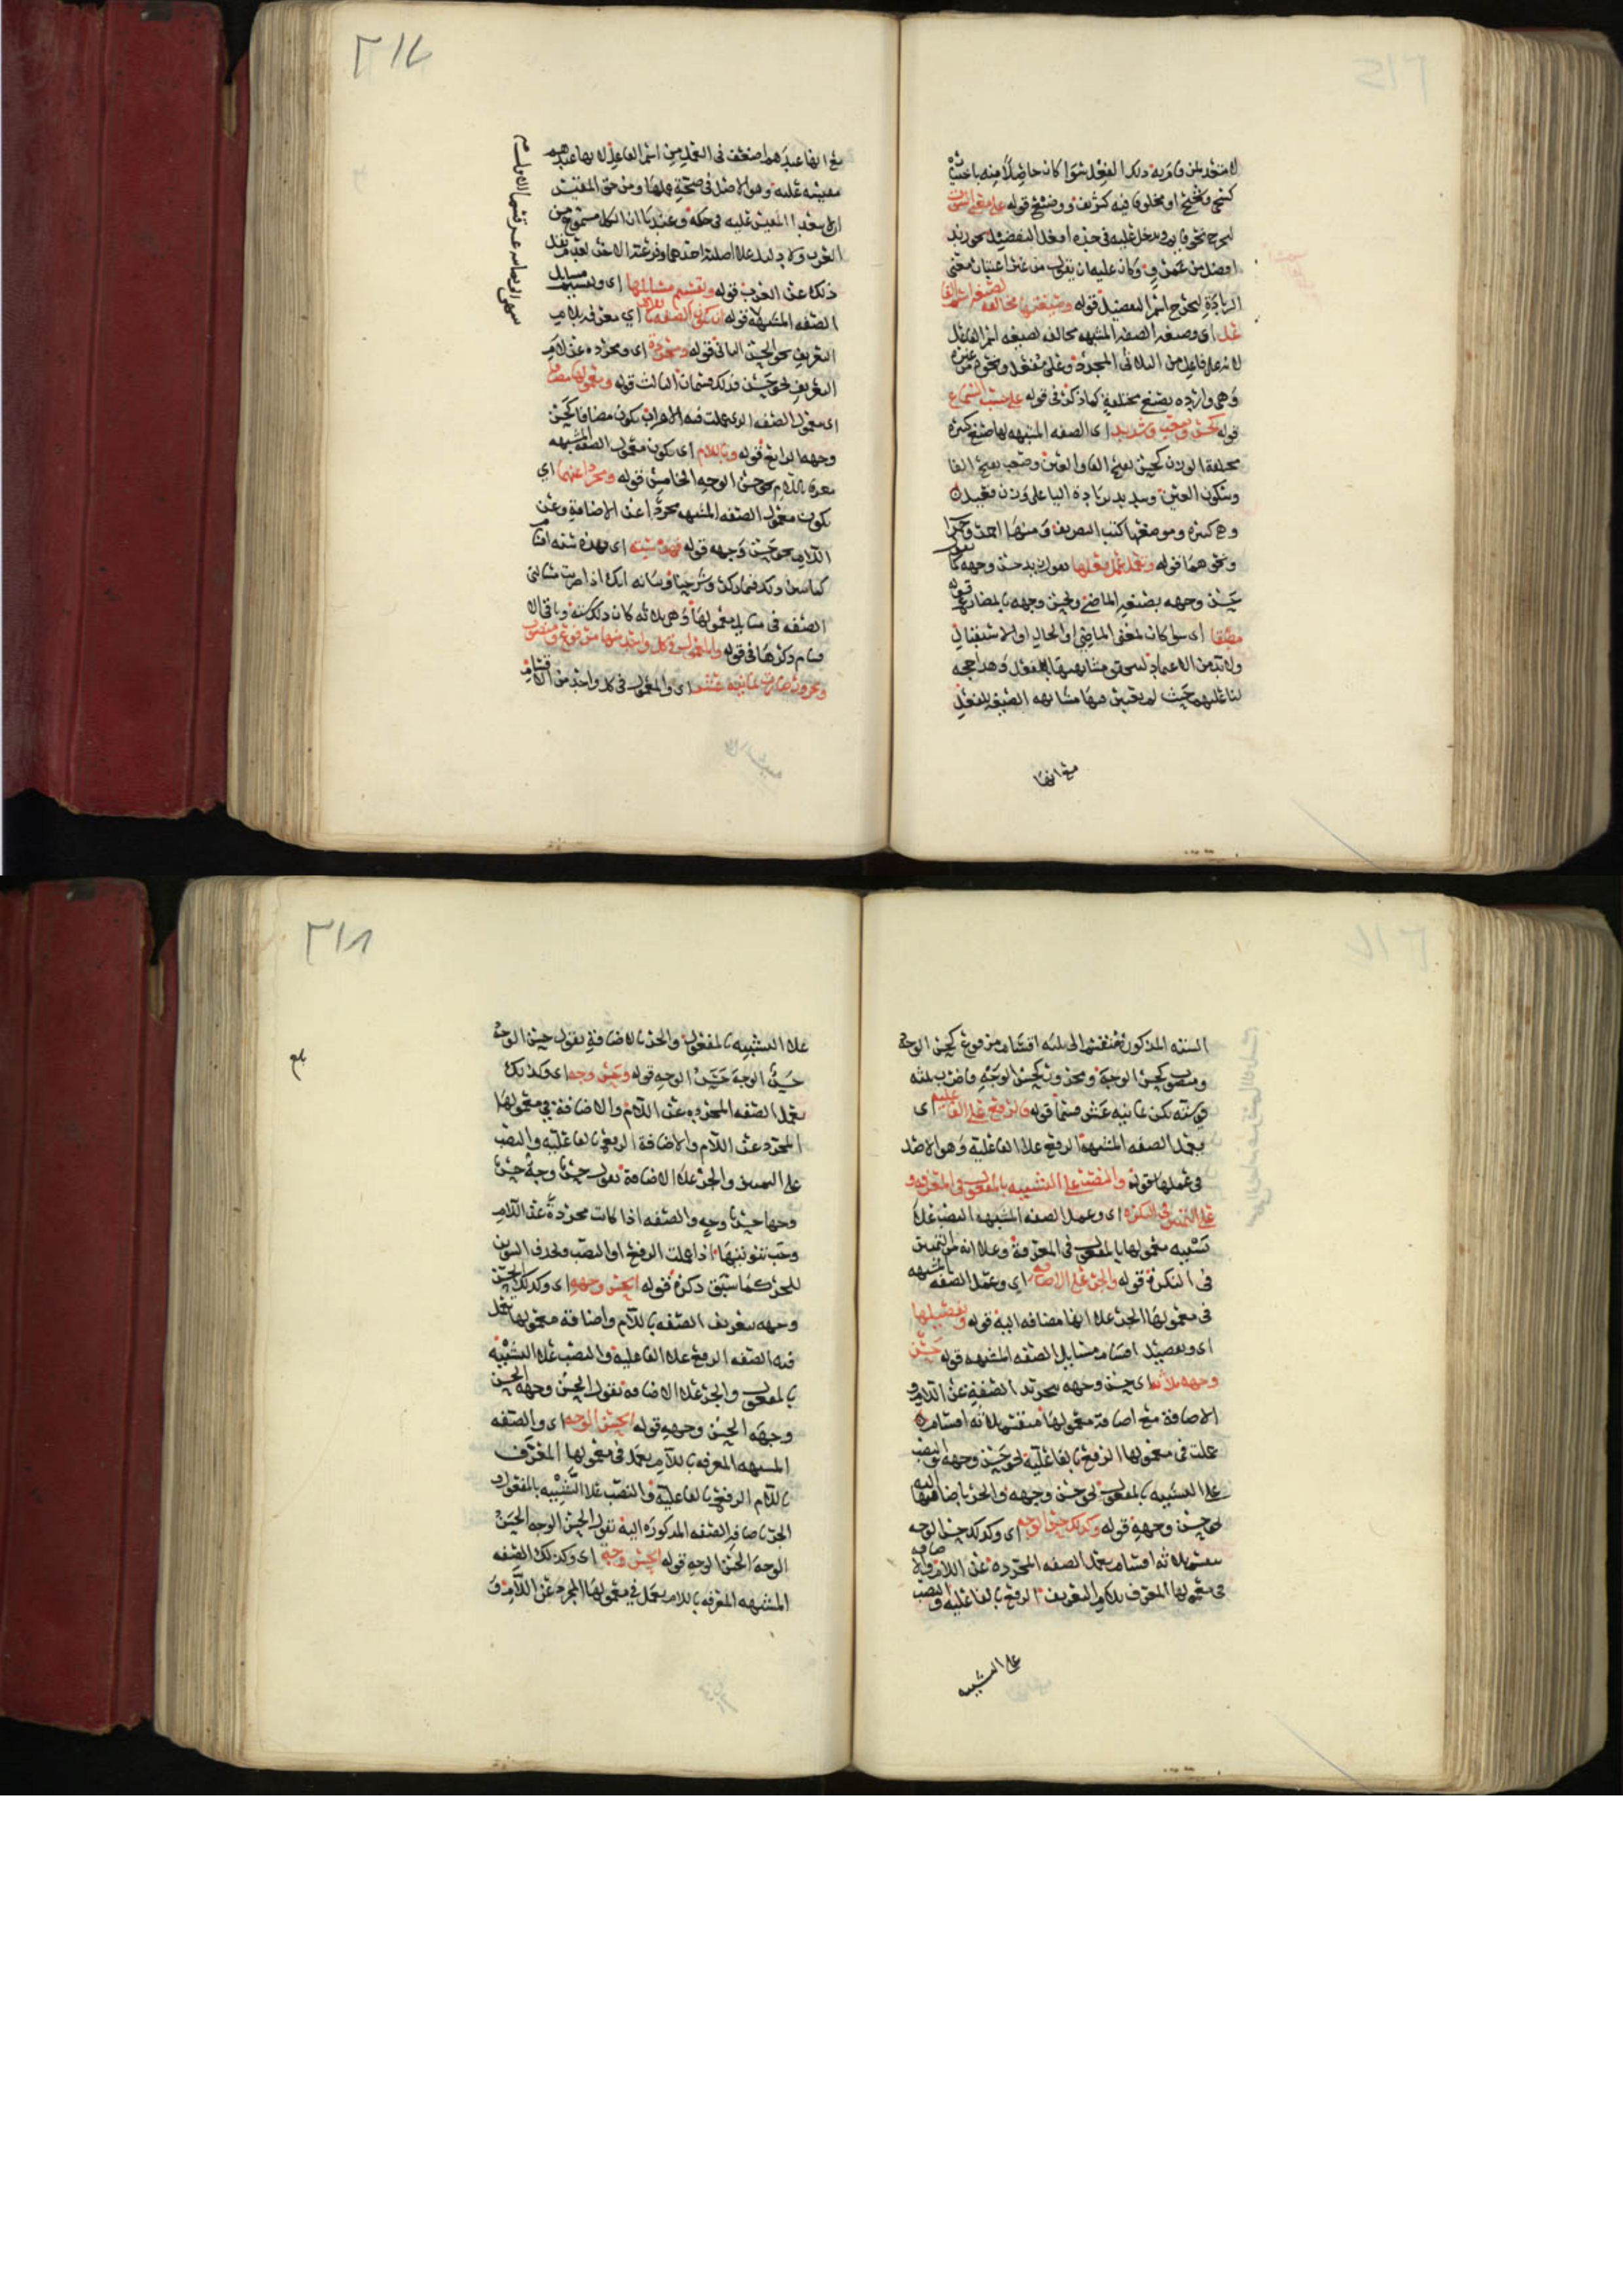 لا متعد لمن قام به ذلك الفعل سوا كان حاصلا منه باختياره
او مخلوقا فيه قوله على معنى الثبوت
ليخرج نحو قايم ويدخل عليه في حده افعل التفضيل نحو زيد
افضل من عمرو وكان عليه ان يقول من غير اعتبار معنى
الزيادة ليخرج اسم التفضيل قوله وصيغتها مخالفة لصيغة اسم الفا
عل اي وصيغة الصفة المشبهة مخالفة لصيغة اسم الفاعل
لانه على فاعل من الثلاثي المجرد وعلى مفتعل ونحوه من غيره
وهي واردة بصيغ مختلفة كما ذكره في قوله على حسب السماع
قوله كحسن وصعب وشديد اي الصفة المشبهة لها صيغ كثيرة
مختلفة الوزن كحسن بفتح الفا والعين وصعب بفتح الفا
وسكون العين وشديد بزيادة اليا على وزن فعيل
وهي كثيرة وموضعها كتب التصريف ومنها احمر وحمرا
ونحوهما قوله وتعمل عمل فعلها تقول زيد حسن وجهه كما تقول
حسن وجهه بصيغة الماضي ويحسن وجهه بالمضارع قوله
مطلقا اي سوا كان لمعنى الماضي او الحال او الاستقبال
ولا بد من الاعتماد لتقوى مشابهتها بالفعل وهذا حجه
لنا عليهم حيث لم يعتبر فيها مشابهه الصيغة للفعل
مع انها
٣١٧
مع انها عندهم اضعف في العمل من اسم الفاعل لانها عندهم
مقيسه عليه وهو الاصل في صحة عملها ومن حق المقيس
ان لا يتعدا المقيس عليه في حكمه وعندنا ان الكل مسموع من
العرب ولا دليل على اصلية احدهما وفرعية الاخر لعدم نقل
ذلك عن العرب قوله وتقسيم مسايلها اي وتقسيم مسايل
الصفه المشبهة قوله ان تكون الصفه باللام اي معرفه بلام
التعريف نحو الحسن الثاني قوله ومجردة اي ومجرده عن لام
التعريف نحو حسن فذلك قسمان الثالث قوله ومعمولها مضافا
اي معمول الصفه الذي عملت فيه الاعراب يكون مضافا كحسن
وجهه الرابع قوله وباللام اي يكون معمول الصفه المشبهه
معرفه باللام نحو حسن الوجه الخامس قوله ومجردا عنهما اي
يكون معمول الصفه المشبهه مجردا عن الاضافة وعن
اللام نحو حسن وجه قوله فهذه سته اي فهذه سته اقسام
كما سبق وذلك
الصفه في مسايل معمولها وهي ثلاثه كان ذلك سته وباقي الا
قسام ذكرها في قوله والمعمول في كل واحد منها مرفوع ومنصوب
ومجرور صارت ثمانية عشر اي والمعمول في كل واحد من الاقسام
السته المذكورة منقسم الى ثلثه اقسام مرفوع كحسن الوجه
ومنصوب كحسن الوجه ومجرور كحسن الوجه فاضرب ثلثه
في سته تكن ثمانيه عشر قسما قوله فالرفع على الفاعلية اي
تعمل الصفه المشبهة الرفع على الفاعلية وهو الاصل
في عملها قوله والنصب على التشبيه بالمفعول في المعرفه و
على التمييز في النكره اي وعمل الصفه المشبهه النصب على
تشبيه معمولها بالمفعول في المعرفة وعلى انه التمييز
في النكرة قوله والجر على الاضافه اي وعمل الصفه المشبهه
في معمولها الجر على انها مضافه اليه قوله وتفصيلها
اي وتفصيل اقسام مسايل الصفه المشبهه قوله حسن
وجهه ثلاثه اي حسن وجهه بتجريد الصفة عن اللام و
الاضافة مع اضافة معمولها منقسم ثلاثه اقسام
عملت في معمولها الرفع بالفاعلية نحو حسن وجهه والنصب
على التشبيه بالمفعول نحو حسن وجهه والجر باضافتها اليه
نحو حسن وجهه قوله وكذلك حسن الوجه اي وكذلك حسن الوجه
منقسم ثلاثه اقسام تعمل الصفه المجرده عن اللام والاضافه
في معمولها المعرف بلام التعريف الرفع بالفاعليه والنصب
على التشبيه
٣١٨
على التشبيه بالمفعول والجر بالاضافة تقول حسن الوجه
حسن الوجه حسن الوجه قوله وحسن وجه اي وكذلك
تعمل الصفه المجرده عن اللام والاضافة في معمولها
المجرد عن اللام والاضافة الرفع بالفاعلية والنصب
على التمييز والجر على الاضافة تقول حسن وجه حسن
وجها حسن وجه والصفه اذا كانت مجردة عن اللام
وجب تنوينها اذا عملت الرفع او النصب وحذف التنوين
للجر كما سبق ذكره قوله الحسن وجهه اي وكذلك الحسن
وجهه بتعريف الصفه باللام واضافة معمولها تعمل
فيه الصفه الرفع على الفاعلية والنصب على التشبيه
بالمفعول والجر على الاضافه تقول الحسن وجهه الحسن
وجهه الحسن وجهه قوله الحسن الوجه اي والصفه
المشبهه المعرفه باللام تعمل في معمولها المعرف
باللام الرفع بالفاعلية والنصب على التشبيه بالمفعول و
الجر باضافة الصفه المذكوره اليه تقول الحسن الوجه الحسن
الوجه الحسن الوجه قوله الحسن وجه اي وكذلك الصفه
المشبهه المعرفه باللام تعمل في معمولها المجرد عن اللام و